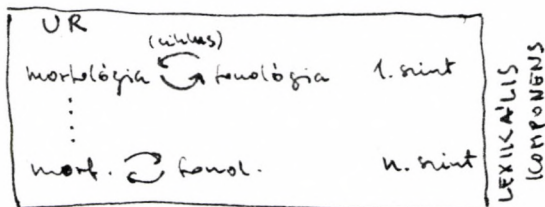 UR
(ciklus)
morfológia fonológia 1. szint
morf. fonol. n. szint
LEXIKÁLIS
KOMPONENS